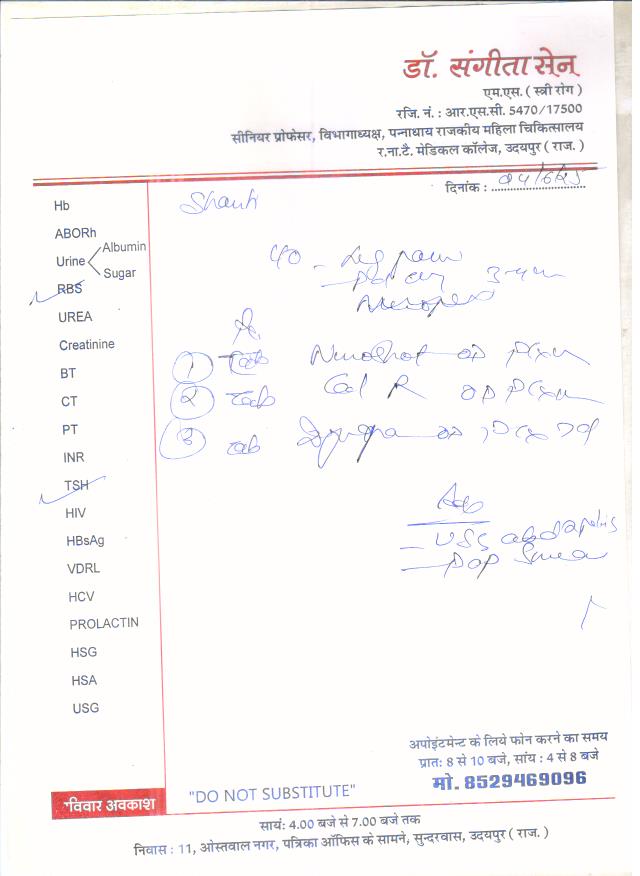 डॉ. संगीता सेन
एम.एस. ( स्त्री रोग )
रजि. नं. : आर.एस.सी. 5470/17500
सीनियर प्रोफेसर, विभागाध्यक्ष, पन्नाधाय राजकीय महिला चिकित्सालय
र.ना.टै. मेडिकल कॉलेज, उदयपुर ( राज. )
दिनांक :
Hb
ABORh
Urine Albumin
Sugar
RBS
UREA
Creatinine
BT
CT
PT
INR
TSH
HIV
HBsAg
VDRL
HCV
PROLACTIN
HSG
HSA
USG
Shanti
Leg pain
1 Tab OD
2 Tab Cal R OD
3 Tab OD
Adv
- USG
- Pap Smear
अपोइंटमेन्ट के लिये फोन करने का समय
प्रातः 8 से 10 बजे, सांय : 4 से 8 बजे
मो. 8529469096
रविवार अवकाश
"DO NOT SUBSTITUTE"
सायं: 4.00 बजे से 7.00 बजे तक
निवास : 11, ओस्तवाल नगर, पत्रिका ऑफिस के सामने, सुन्दरवास, उदयपुर ( राज. )